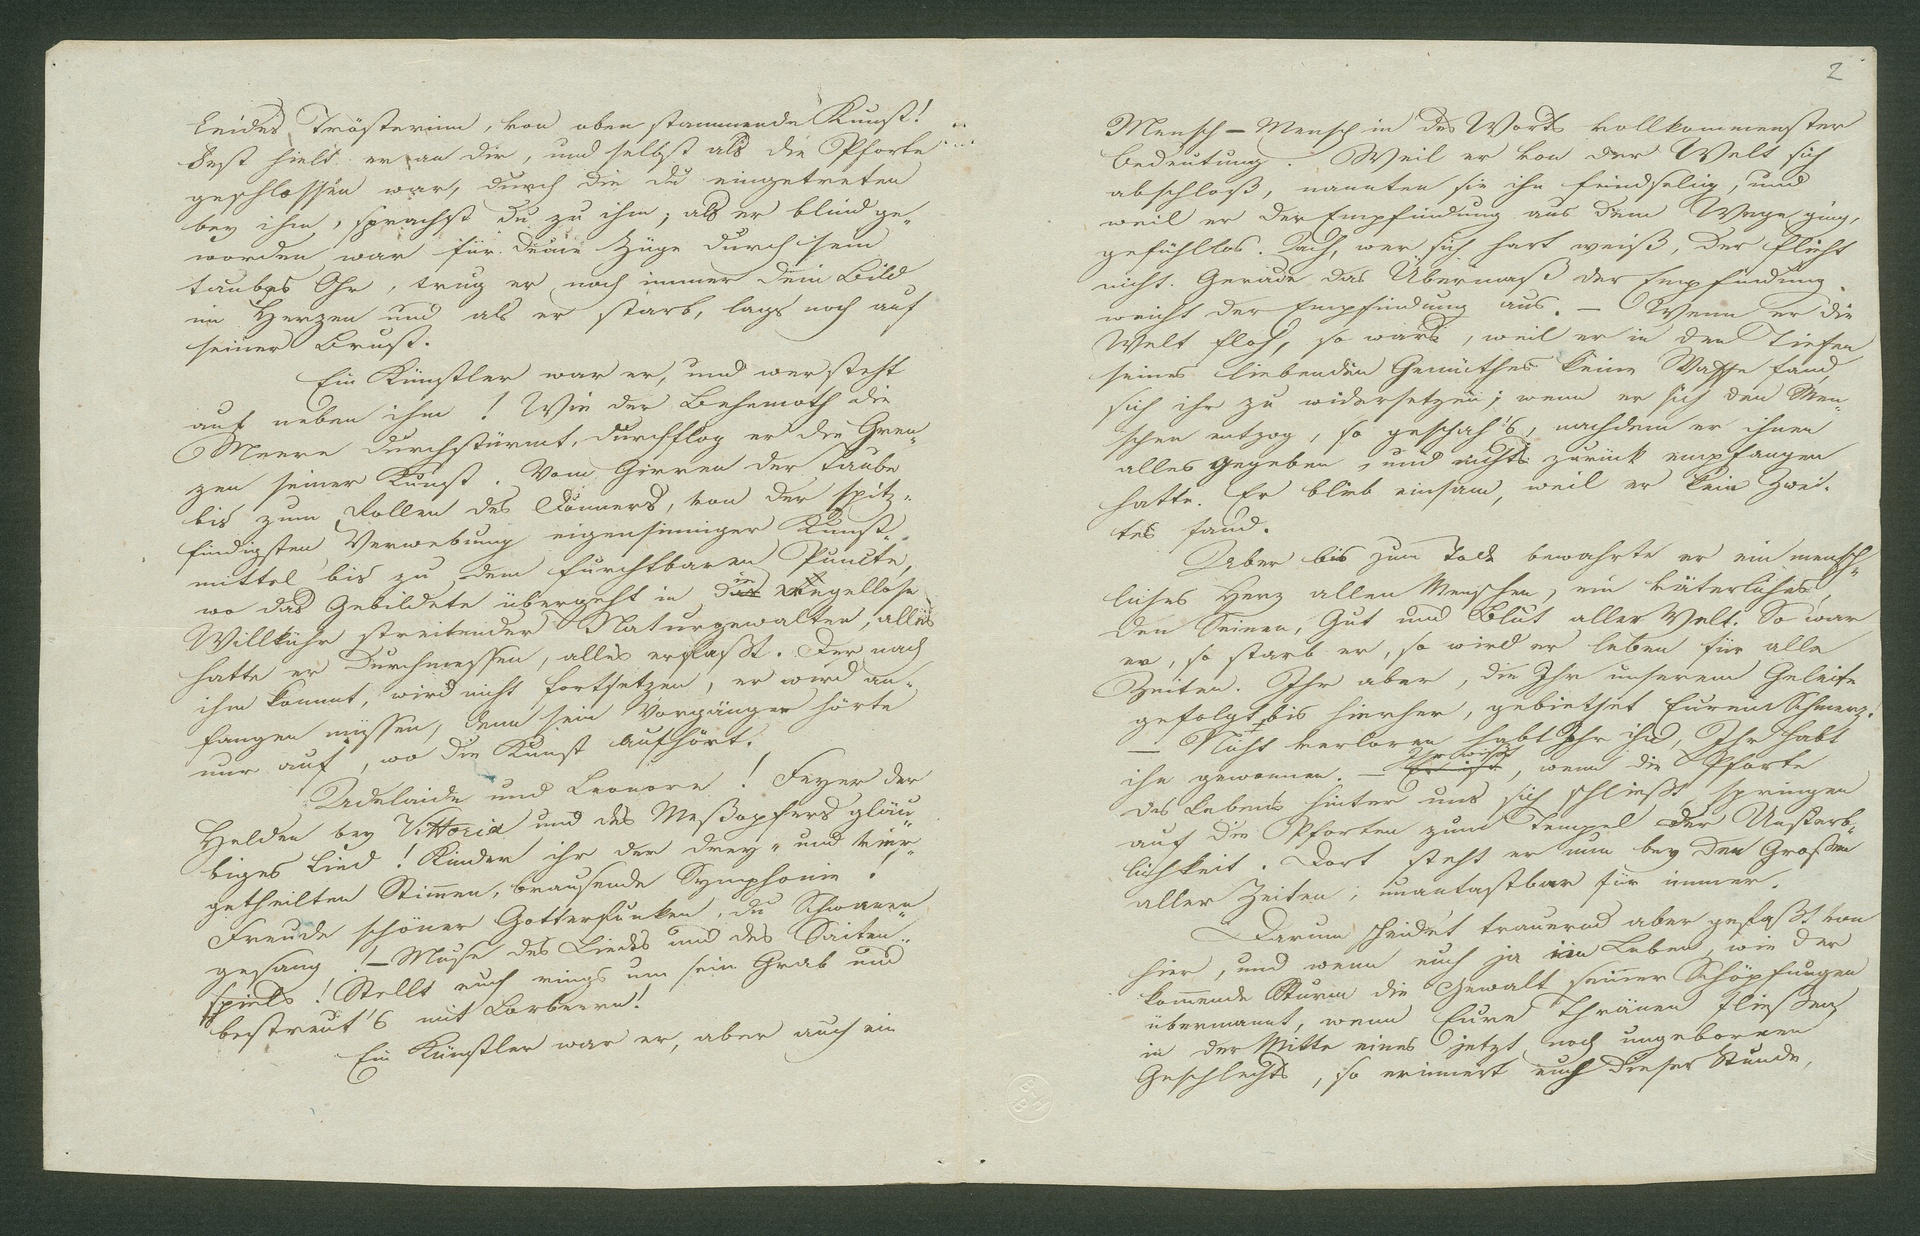 Leides Trösterinn, von oben stammende Kunst!
Fest hielt er an dir, und selbst als die Pforte
geschlossen war, durch die du eingetreten
bey ihm, sprachst du zu ihm; als er blind ge-
worden war für deine Züge durch sein
taubes Ohr, trug er noch immer dein Bild
im Herzen und als er starb, lags noch auf
seiner Brust.
Ein Künstler war er, und wer steht
auf neben ihm! Wie der Behemoth die
Meere durchstürmt, durchflog er die Gren-
zen seiner Kunst. Vom Girren der Taube
bis zum Rollen des Donners, von der spitz-
findigsten Verwebung eigensinniger Kunst-
mittel bis zu dem furchtbaren Punkte,
wo das Gebildete übergeht in die regellose
Willkühr streitender Naturgewalten, alles
hatte er durchmessen, alles erfaßt. Der nach
ihm kommt, wird nicht fortsetzen, er wird an-
fangen müssen, denn sein Vorgänger hörte
nur auf, wo die Kunst aufhört.
Adelaide und Leonore! Feyer der
Helden bey Vittoria und des Meßopfers gläu-
biges Lied! Kinder ihr der drey- und vier-
getheilten Stimmen, brausende Symphonie!
Freude schöner Götterfunken, du Schwanen-
gesang! – Muse des Liedes und des Saiten-
spiels! Stellt euch rings um sein Grab und
bestreut's mit Lorbeern!
Ein Künstler war er, aber auch ein
2
Mensch – Mensch in des Worts vollkommenster
Bedeutung. Weil er von der Welt sich
abschloß, nannten sie ihn feindselig, und
weil er der Empfindung aus dem Wege ging,
gefühllos. Ach, wer sich hart weiß, der flieht
nicht. Gerade das Übermaß der Empfindung
weicht der Empfindung aus. – Wenn er die
Welt floh, so wars, weil er in den Tiefen
seines liebenden Gemüthes keine Waffe fand,
sich ihr zu widersetzen; wenn er sich den Men-
schen entzog, so geschah's, nachdem er ihnen
alles gegeben, und nichts zurück empfangen
hatte. Er blieb einsam, weil er kein Zwei-
tes fand.
Aber bis zum Tode bewahrte er ein mensch-
liches Herz allen Menschen, ein väterliches
den Seinen, Gut und Blut aller Welt. So war
er, so starb er, so wird er leben für alle
Zeiten. Ihr aber, die Ihr unserem Geleite
gefolgt bis hierher, gebiethet Eurem Schmerz!
– Nicht verloren habt Ihr ihn, Ihr habt
ihn gewonnen. – Ihr wißt, wenn die Pforte
des Lebens hinter uns sich schließt springen
auf die Pforten zum Tempel der Unsterb-
lichkeit. Dort steht er nun bey den Großen
aller Zeiten; unantastbar für immer.
Darum scheidet trauernd aber gefaßt von
hier, und wenn euch je im Leben, wie der
kommende Sturm die Gewalt seiner Schöpfungen
übermannt, wenn Eure Thränen fließen
in der Mitte eines jetzt noch ungebornen
Geschlechts, so erinnert euch dieser Stunde,